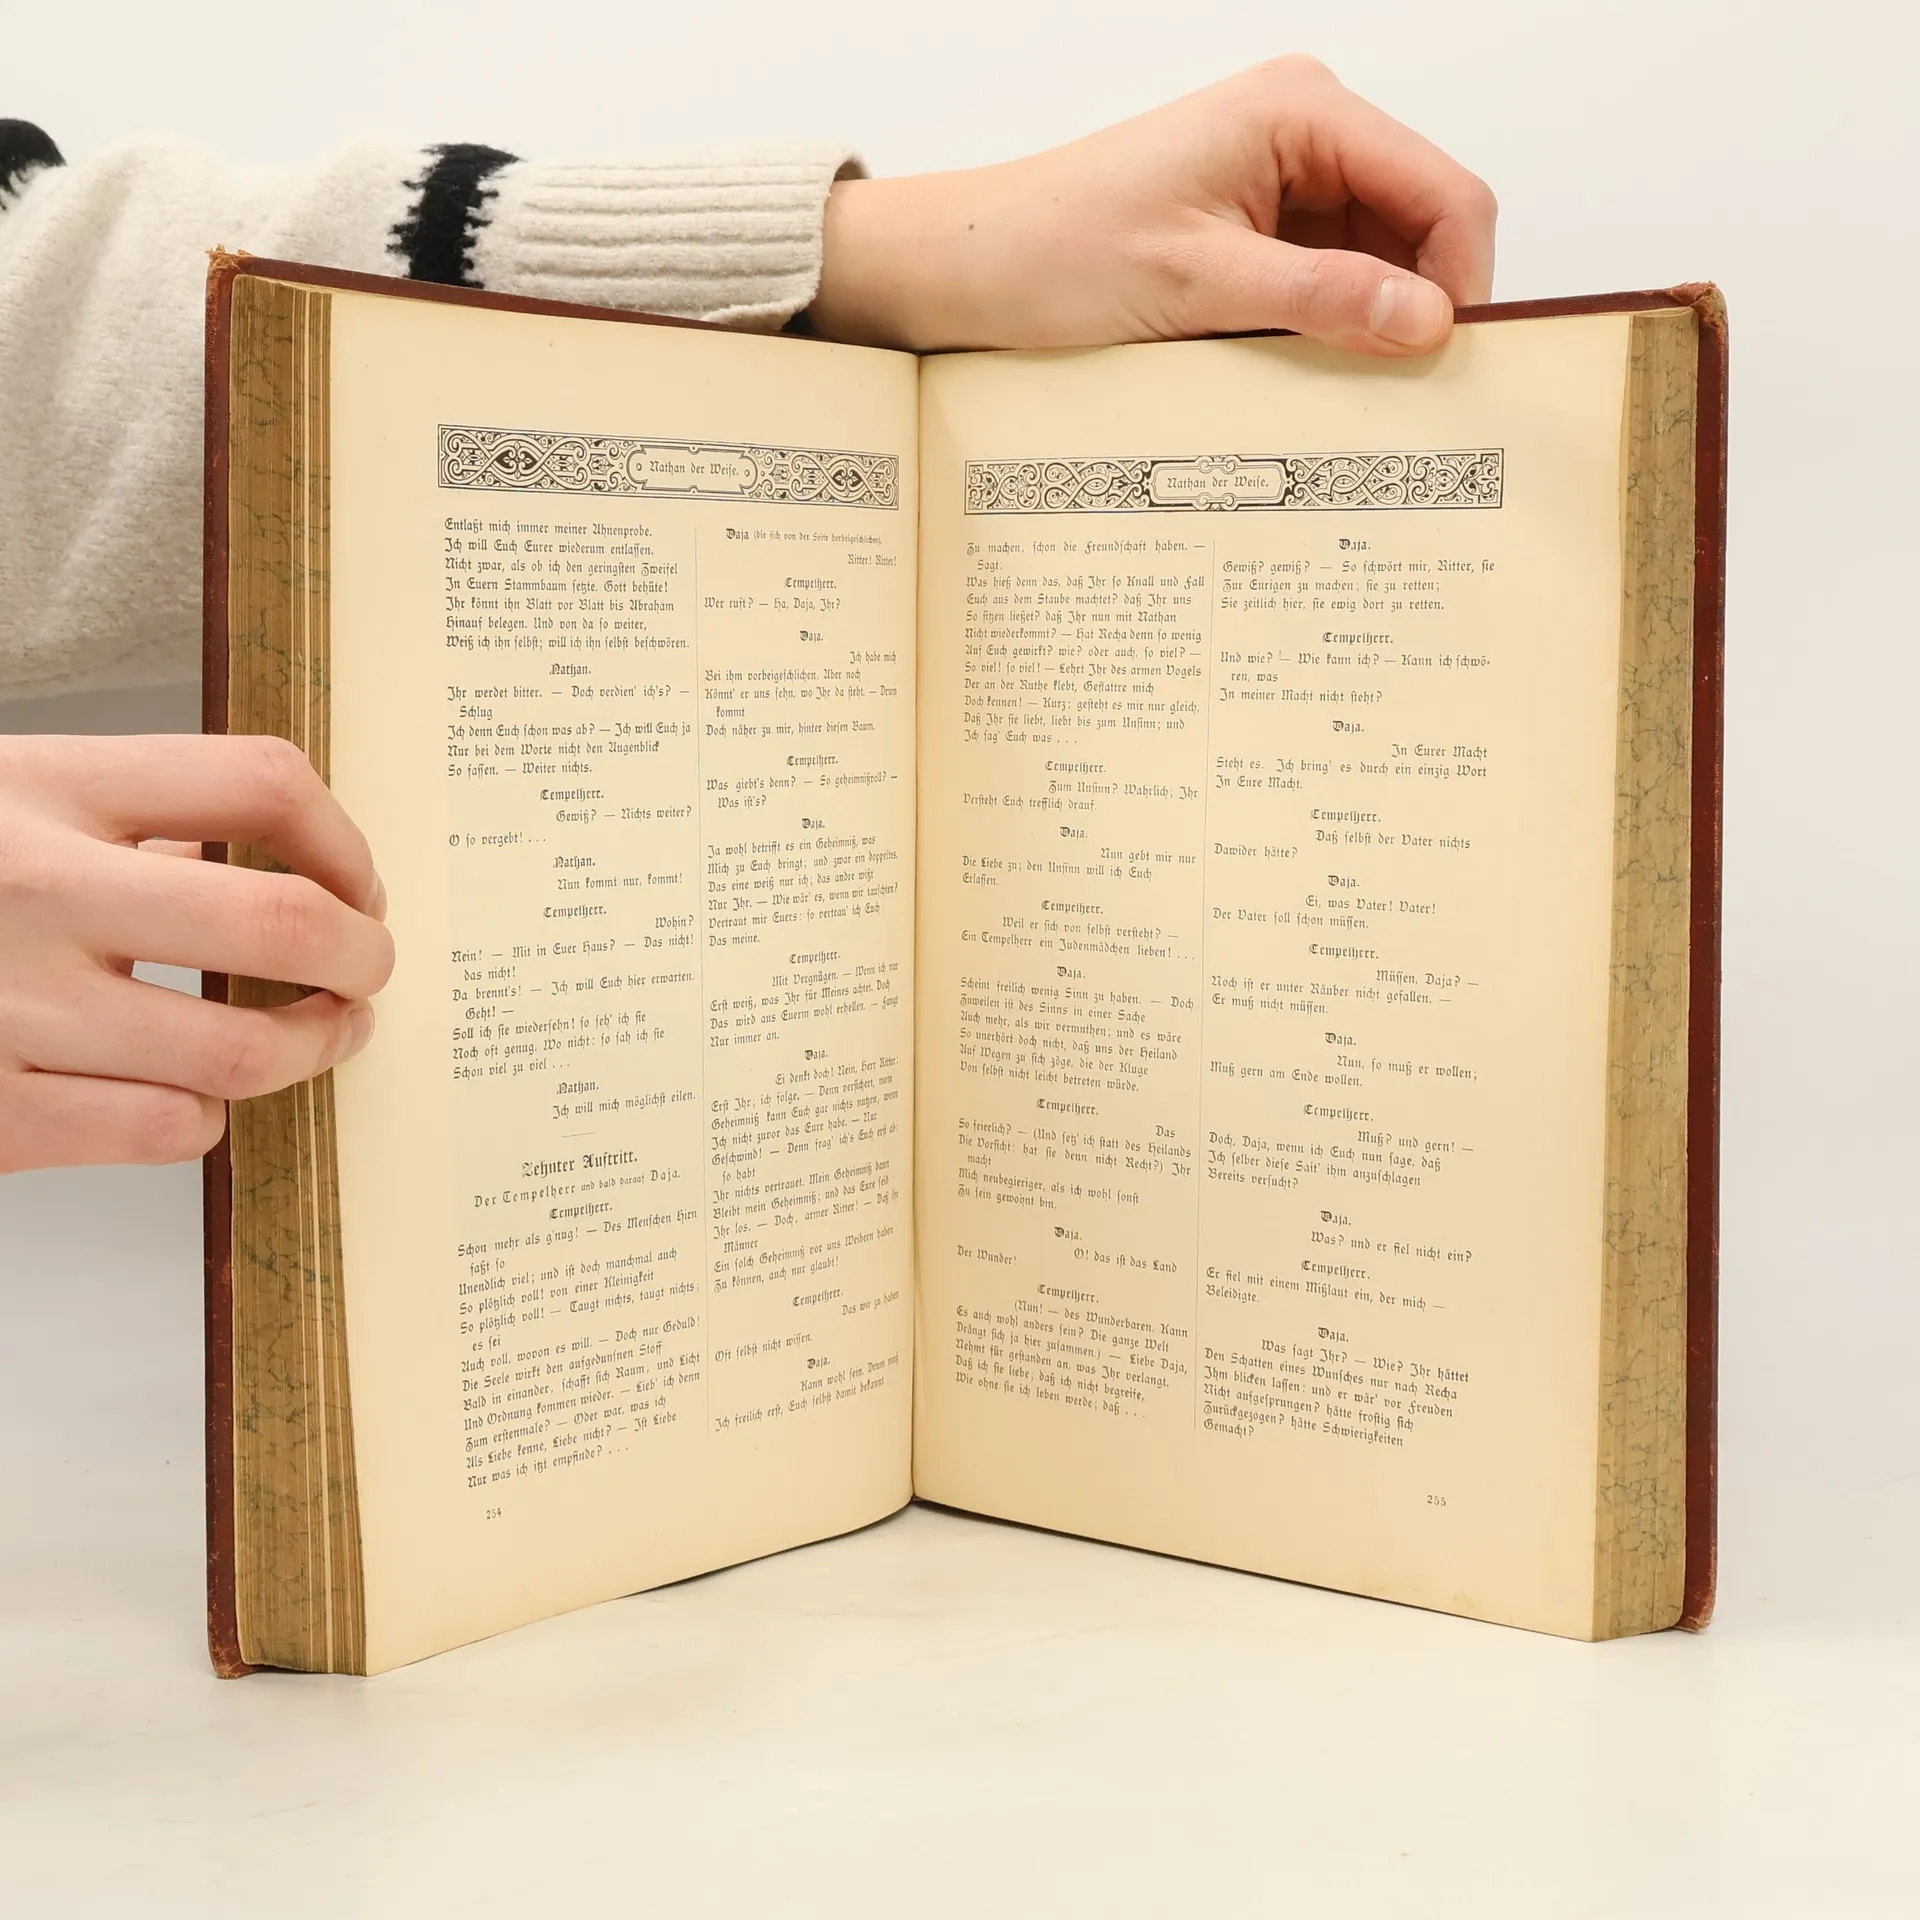 Nathan der Weise.
Entlaßt mich immer meiner Ahnenprobe.
Ich will Euch Eurer wiederum entlassen.
Nicht zwar, als ob ich den geringsten Zweifel
In Euern Stammbaum setzte. Gott behüte!
Ihr könnt ihn Blatt vor Blatt bis Abraham
Hinauf belegen. Und von da so weiter,
Weiß ich ihn selbst; will ich ihn selbst beschwören.
Nathan.
Ihr werdet bitter. — Doch verdien' ich's? —
Schlug
Ich denn Euch schon was ab? — Ich will Euch ja
Nur bei dem Worte nicht den Augenblick
So fassen. — Weiter nichts.
Tempelherr.
Gewiß? — Nichts weiter?
O so vergebt! . . .
Nathan.
Nun kommt nur, kommt!
Tempelherr.
Wohin?
Nein! — Mit in Euer Haus? — Das nicht!
das nicht!
Da brennt's! — Ich will Euch hier erwarten.
Geht! —
Soll ich sie wiedersehn! so seh' ich sie
Noch oft genug. Wo nicht: so sah ich sie
Schon viel zu viel . . .
Nathan.
Ich will mich möglichst eilen.
Zehnter Auftritt.
Der Tempelherr und bald darauf Daja.
Tempelherr.
Schon mehr als g'nug! — Des Menschen Hirn
faßt so
Unendlich viel; und ist doch manchmal auch
So plötzlich voll! von einer Kleinigkeit
So plötzlich voll! — Taugt nichts, taugt nichts;
es sei
Auch voll, wovon es will. — Doch nur Geduld!
Die Seele wirkt den aufgedunsnen Stoff
Bald in einander, schafft sich Raum, und Licht
Und Ordnung kommen wieder. — Lieb' ich denn
Zum erstenmale? — Oder war, was ich
Als Liebe kenne, Liebe nicht? — Ist Liebe
Nur was ich itzt empfinde? . . .
Daja (die sich von der Seite herbeigeschlichen).
Ritter! Ritter!
Tempelherr.
Wer ruft? — Ha, Daja, Ihr?
Daja.
Ich habe mich
Bei ihm vorbeigeschlichen. Aber noch
Könnt' er uns sehn, wo Ihr da steht. — Drum
kommt
Doch näher zu mir, hinter diesen Baum.
Tempelherr.
Was giebt's denn? — So geheimnißvoll? —
Was ist's?
Daja.
Ja wohl betrifft es ein Geheimniß, was
Mich zu Euch bringt; und zwar ein doppeltes.
Das eine weiß nur ich; das andre wißt
Nur Ihr. — Wie wär' es, wenn wir tauschten?
Vertraut mir Euers: so vertrau' ich Euch
Das meine.
Tempelherr.
Mit Vergnügen. — Wenn ich nur
Erst weiß, was Ihr für Meines achtet. Doch
Das wird aus Euerm wohl erhellen. — Fangt
Nur immer an.
Daja.
Ei denkt doch! Nein, Herr Ritter:
Erst Ihr; ich folge. — Denn versichert, mein
Geheimniß kann Euch gar nichts nutzen, wenn
Ich nicht zuvor das Eure habe. — Nur
Geschwind! — Denn frag' ich's Euch erst ab:
so habt
Ihr nichts vertrauet. Mein Geheimniß dann
Bleibt mein Geheimniß; und das Eure seid
Ihr los. — Doch, armer Ritter! — Daß ihr
Männer
Ein solch Geheimniß vor uns Weibern haben
Zu können, auch nur glaubt!
Tempelherr.
Das wir zu haben
Oft selbst nicht wissen.
Daja.
Kann wohl sein. Drum muß
Ich freilich erst, Euch selbst damit bekannt
254
Nathan der Weise.
Zu machen, schon die Freundschaft haben. —
Sagt:
Was hieß denn das, daß Ihr so Knall und Fall
Euch aus dem Staube machtet? daß Ihr uns
So sitzen ließet? daß Ihr nun mit Nathan
Nicht wiederkommt? — Hat Recha denn so wenig
Auf Euch gewirkt? wie? oder auch, so viel? —
So viel! so viel! — Lehrt Ihr des armen Vogels
Der an der Ruthe klebt, Geflattre mich
Doch kennen! — Kurz: gesteht es mir nur gleich,
Daß Ihr sie liebt, liebt bis zum Unsinn; und
Ich sag' Euch was . . .
Tempelherr.
Zum Unsinn? Wahrlich; Ihr
Versteht Euch trefflich drauf.
Daja.
Nun gebt mir nur
Die Liebe zu; den Unsinn will ich Euch
Erlassen.
Tempelherr.
Weil er sich von selbst versteht? —
Ein Tempelherr ein Judenmädchen lieben! . . .
Daja.
Scheint freilich wenig Sinn zu haben. — Doch
Zuweilen ist des Sinns in einer Sache
Auch mehr, als wir vermuthen; und es wäre
So unerhört doch nicht, daß uns der Heiland
Auf Wegen zu sich zöge, die der Kluge
Von selbst nicht leicht betreten würde.
Tempelherr.
Das
So feierlich? — (Und setz' ich statt des Heilands
Die Vorsicht: hat sie denn nicht Recht?) Ihr
macht
Mich neubegieriger, als ich wohl sonst
Zu sein gewohnt bin.
Daja.
O! das ist das Land
Der Wunder!
Tempelherr.
(Nun! — des Wunderbaren. Kann
Es auch wohl anders sein? Die ganze Welt
Drängt sich ja hier zusammen.) — Liebe Daja,
Nehmt für gestanden an, was Ihr verlangt.
Daß ich sie liebe; daß ich nicht begreife,
Wie ohne sie ich leben werde; daß . . .
Daja.
Gewiß? gewiß? — So schwört mir, Ritter, sie
Zur Eurigen zu machen; sie zu retten;
Sie zeitlich hier, sie ewig dort zu retten.
Tempelherr.
Und wie? — Wie kann ich? — Kann ich schwö-
ren, was
In meiner Macht nicht steht?
Daja.
In Eurer Macht
Steht es. Ich bring' es durch ein einzig Wort
In Eure Macht.
Tempelherr.
Daß selbst der Vater nichts
Dawider hätte?
Daja.
Ei, was Vater! Vater!
Der Vater soll schon müssen.
Tempelherr.
Müssen, Daja? —
Noch ist er unter Räuber nicht gefallen. —
Er muß nicht müssen.
Daja.
Nun, so muß er wollen;
Muß gern am Ende wollen.
Tempelherr.
Muß? und gern! —
Doch, Daja, wenn ich Euch nun sage, daß
Ich selber diese Sait' ihm anzuschlagen
Bereits versucht?
Daja.
Was? und er fiel nicht ein?
Tempelherr.
Er fiel mit einem Mißlaut ein, der mich —
Beleidigte.
Daja.
Was sagt Ihr? — Wie? Ihr hättet
Den Schatten eines Wunsches nur nach Recha
Ihm blicken lassen: und er wär' vor Freuden
Nicht aufgesprungen? hätte frostig sich
Zurückgezogen? hätte Schwierigkeiten
Gemacht?
255